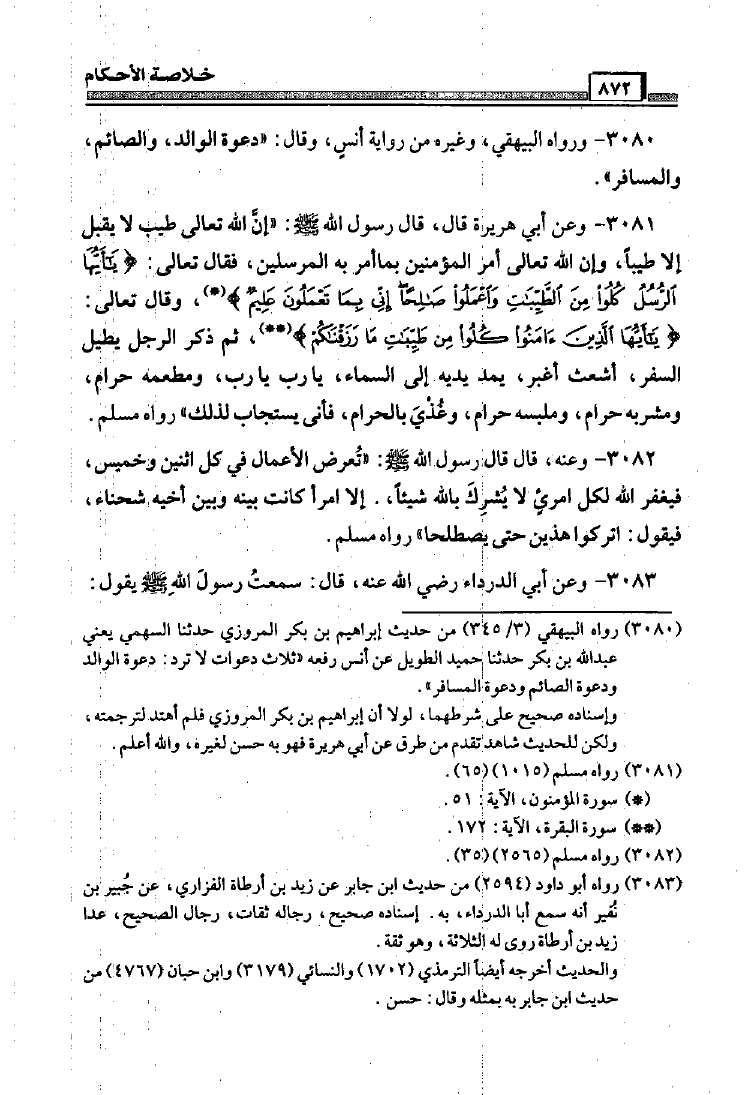 خلاصة الأحكام
٨٧٢
٣٠٨٠- ورواه البيهقي، وغيره من رواية أنسٍ، وقال: «دعوة الوالد، والصائم،
والمسافر».
٣٠٨١- وعن أبي هريرة قال، قال رسول الله ﷺ: «إنَّ الله تعالى طيب لا يقبل
إلا طيباً، وإن الله تعالى أمر المؤمنين بماأمر به المرسلين، فقال تعالى: ﴿يَٰٓأَيُّهَا
ٱلرُّسُلُ كُلُوا۟ مِنَ ٱلطَّيِّبَٰتِ وَٱعْمَلُوا۟ صَٰلِحًا ۖ إِنِّى بِمَا تَعْمَلُونَ عَلِيمٌ﴾(*)، وقال تعالى:
﴿يَٰٓأَيُّهَا ٱلَّذِينَ ءَامَنُوا۟ كُلُوا۟ مِن طَيِّبَٰتِ مَا رَزَقْنَٰكُمْ﴾(**)، ثم ذكر الرجل يطيل
السفر، أشعث أغبر، يمد يديه إلى السماء، يارب يارب، ومطعمه حرام،
ومشربه حرام، وملبسه حرام، وغُذْيَ بالحرام، فأنى يستجاب لذلك» رواه مسلم.
٣٠٨٢- وعنه، قال قال رسول الله ﷺ: «تُعرض الأعمال في كل اثنين وخميس،
فيغفر الله لكل امرىٍ لا يُشرِكَ بالله شيئاً، . إلا امرأ كانت بينه وبين أخيه شحناء،
فيقول: اتركوا هذين حتى يصطلحا» رواه مسلم.
٣٠٨٣- وعن أبي الدرداء رضي الله عنه، قال: سمعتُ رسولَ اللهِ ﷺ يقول:
(٣٠٨٠) رواه البيهقي (٣/ ٣٤٥) من حديث إبراهيم بن بكر المروزي حدثنا السهمي يعني
عبدالله بن بكر حدثنا حميد الطويل عن أنس رفعه «ثلاث دعوات لا ترد: دعوة الوالد
ودعوة الصائم ودعوة المسافر».
وإسناده صحيح على شرطهما، لولا أن إبراهيم بن بكر المروزي فلم أهتد لترجمته،
ولكن للحديث شاهد تقدم من طرق عن أبي هريرة فهو به حسن لغيره، والله أعلم.
(٣٠٨١) رواه مسلم (١٠١٥) (٦٥).
(*) سورة المؤمنون، الآية: ٥١.
(**) سورة البقرة، الآية: ١٧٢.
(٣٠٨٢) رواه مسلم (٢٥٦٥) (٣٥).
(٣٠٨٣) رواه أبو داود (٢٥٩٤) من حديث ابن جابر عن زيد بن أرطاة الفزاري، عن جُبير بن
نُفير أنه سمع أبا الدرداء، به. إسناده صحيح، رجاله ثقات، رجال الصحيح، عدا
زيد بن أرطاة روى له الثلاثة، وهو ثقة.
والحديث أخرجه أيضاً الترمذي (١٧٠٢) والنسائي (٣١٧٩) وابن حبان (٤٧٦٧) من
حديث ابن جابر به بمثله وقال: حسن.